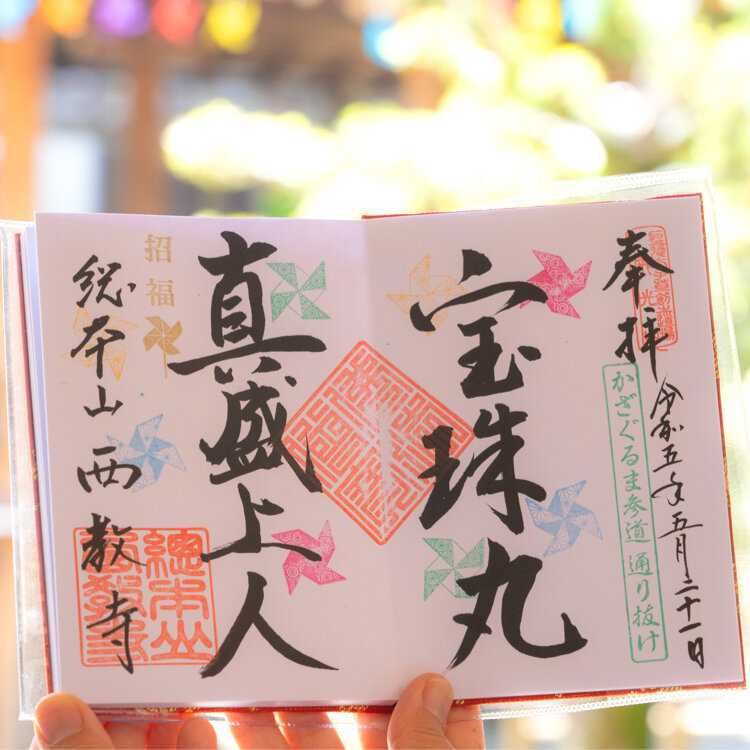 奉拝
令和五年五月二十一日
かざぐるま参道 通り抜け
宝珠丸
真盛上人
招福
総本山 西教寺
總本山
西教寺